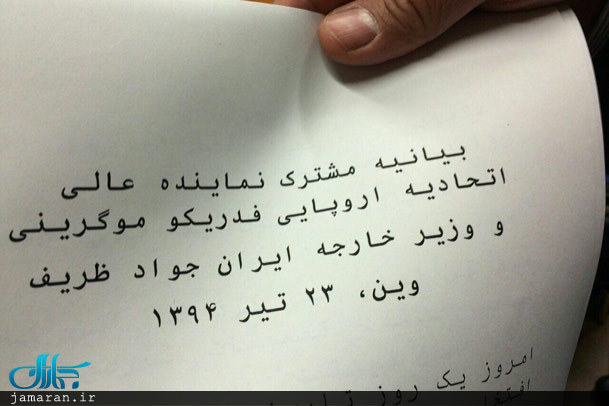 بیانیه مشترک نماینده عالی
اتحادیه اروپایی فدریکو موگرینی
و وزیر خارجه ایران جواد ظریف
وین، ۲۳ تیر ۱۳۹۴
امروز یک روز
جماران
jamaran.ir